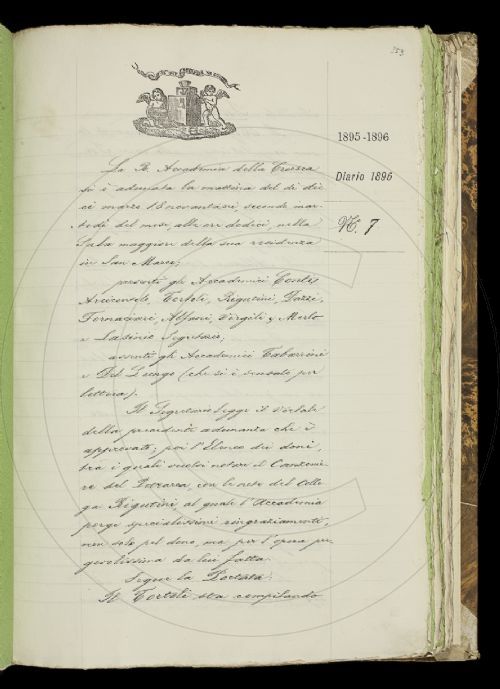 1895-1896
Diario 1896
N.º 7
La R. Accademia della Crusca
si è adunata la mattina del dì die
ci marzo 1896, secondo mar
tedì del mese alle ore dodici, nella
Sala maggiore della sua residenza
in San Marco;
presenti gli Accademici Conti,
Arciconsolo, Tortoli, Rigutini, Dazzi,
Fornaciari, Alfani, Vergili, Merlo
e Lasinio Segretario;
assenti gli Accademici Tabarrini
e Del Lungo (che si è scusato per
lettera).
Il Segretario legge il Verbale
della precedente adunanza che è
approvato; poi l'Elenco dei doni,
tra i quali vuolsi notare il Canzonie
re del Petrarca, con le note del Colle
ga Rigutini, al quale l'Accademia
porge specialissimi ringraziamenti,
non solo pel dono, ma per l'opera pre
gevolissima da lui fatta.
Segue la
Il Tortoli sta compilando